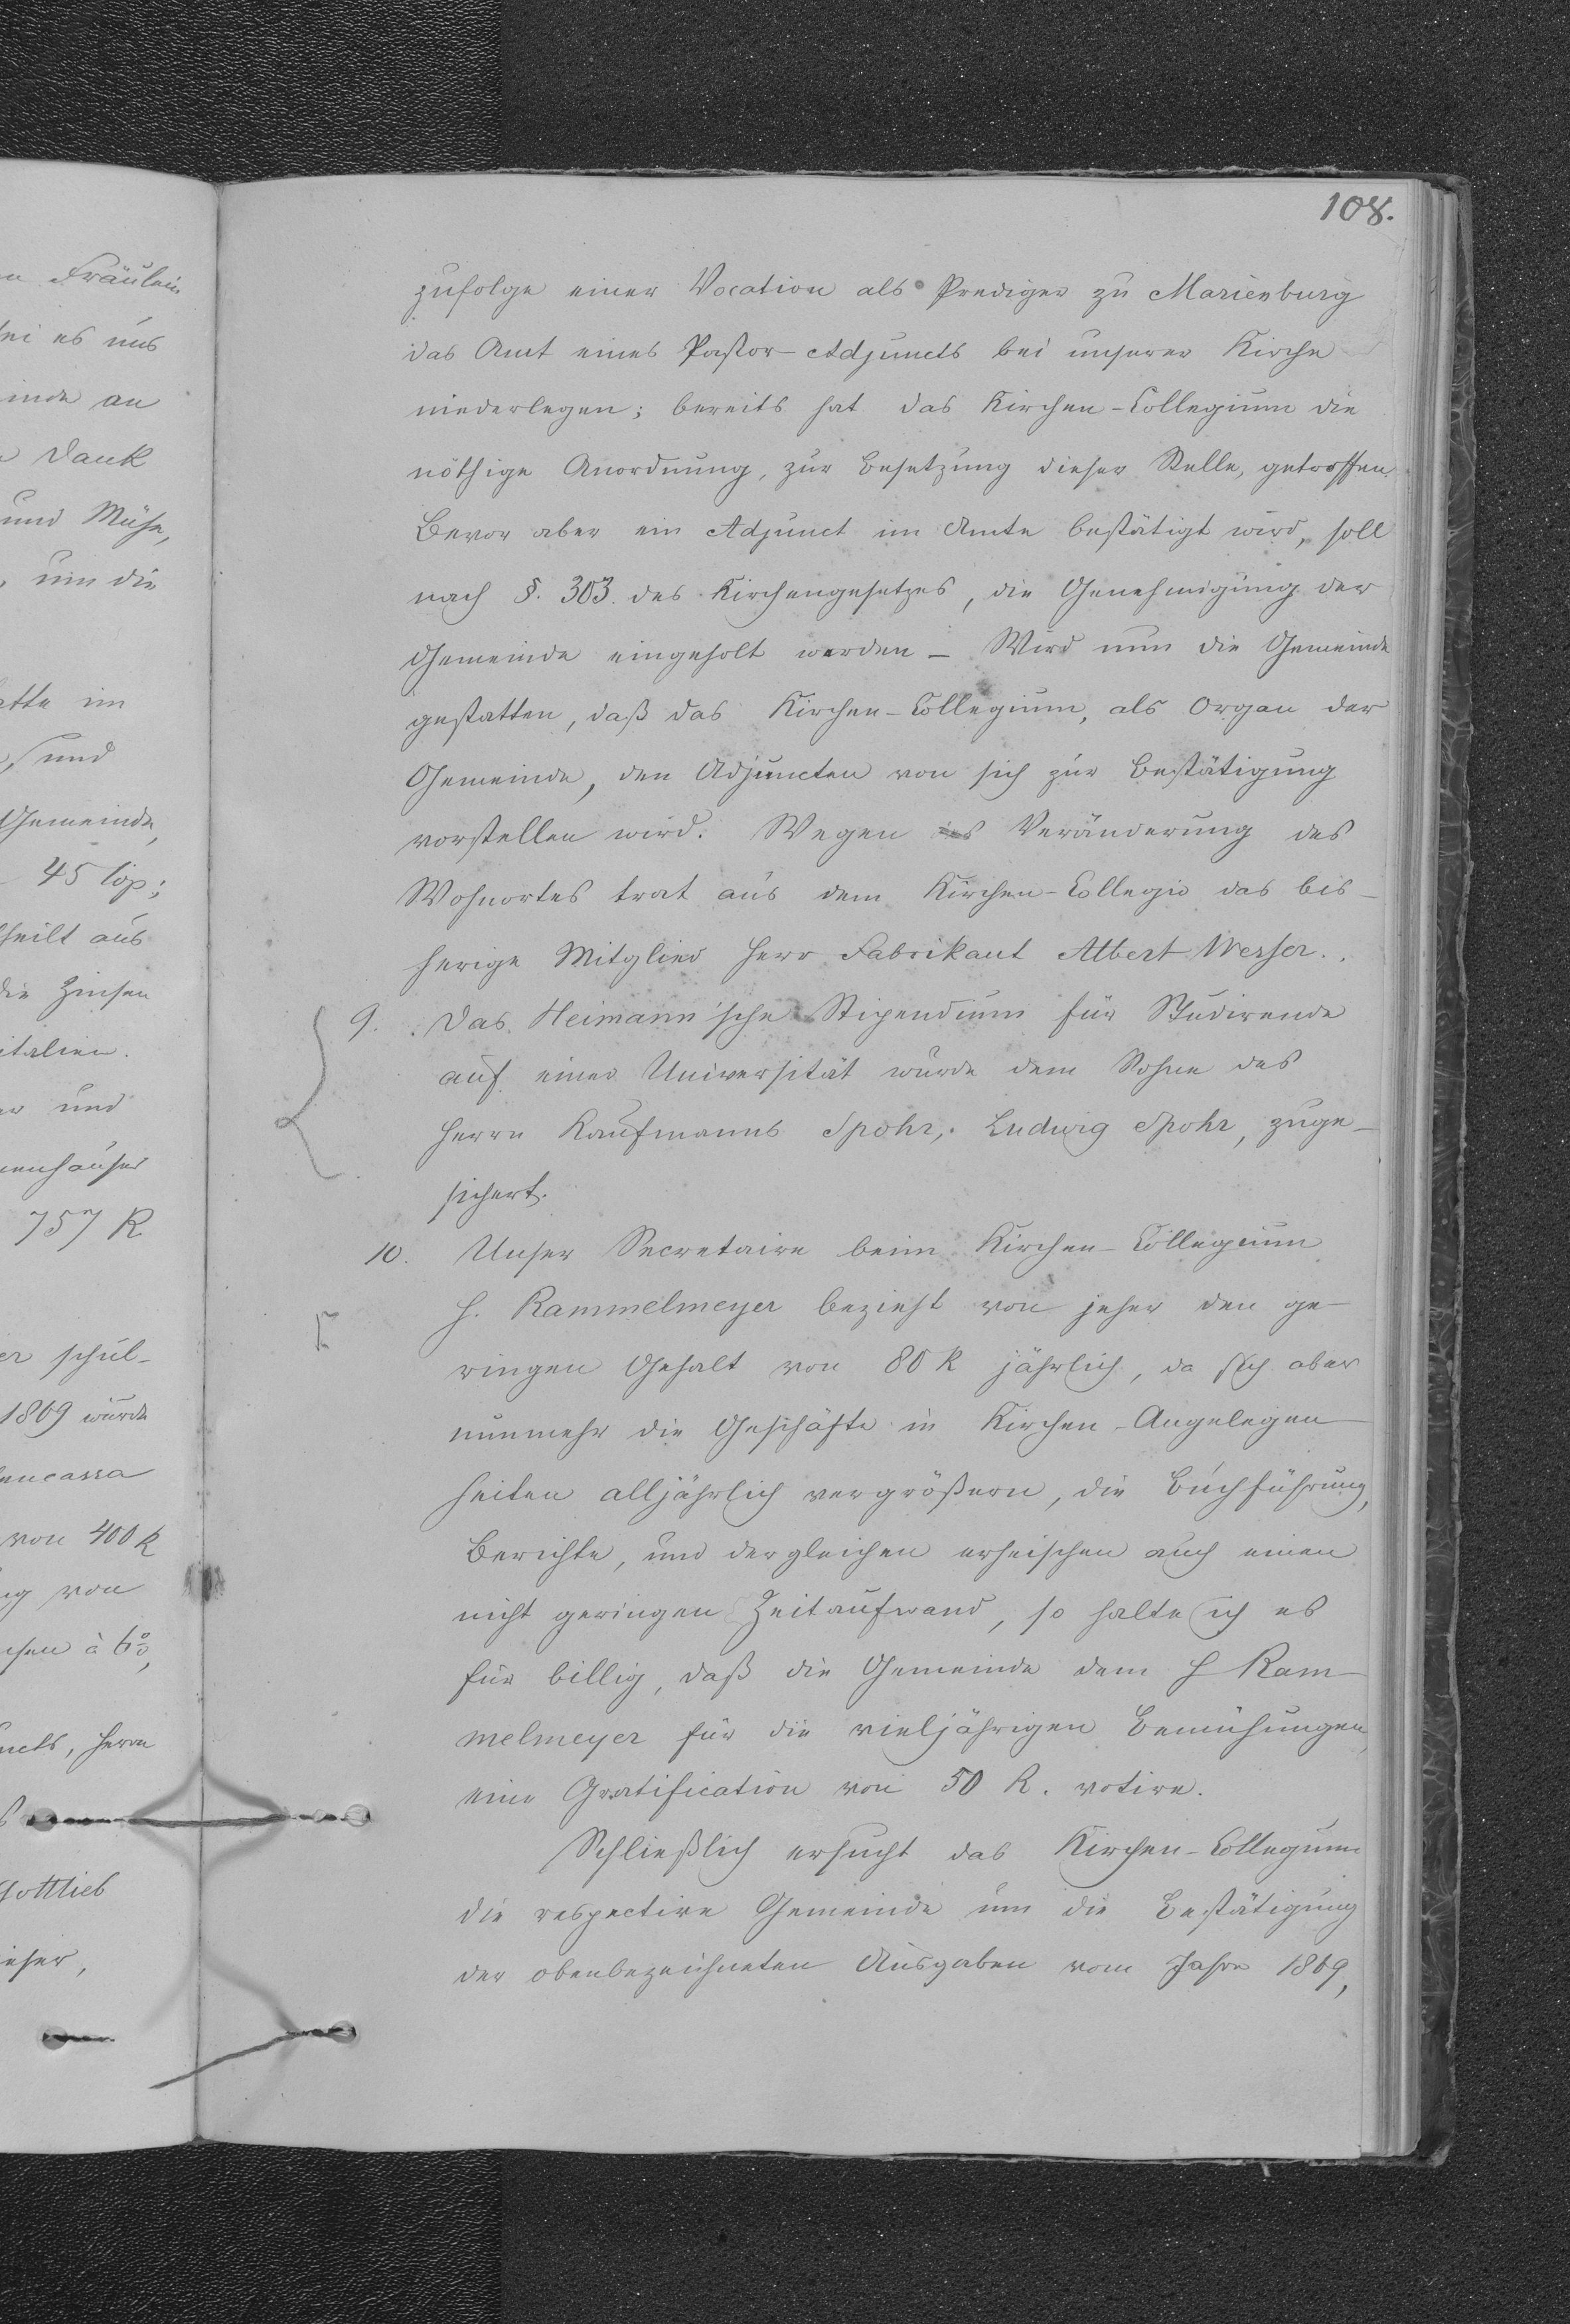 108.
zufolge einer Vocation als Prediger zu Marienburg
das Amt eines Pastor-Adjuncts bei unserer Kirche
niederlegen; bereits hat das Kirchen-Collegium die
nöthige Anordnung, zur Besetzung dieser Stelle, getroffen.
Bevor aber ein Adjunct im Amte bestätigt wird, soll
nach §. 303. des Kirchengesetzes, die Genehmigung der
Gemeinde eingeholt werden – Wird nun die Gemeinde
gestatten, daß das Kirchen-Collegium, als Organ der
Gemeinde, den Adjuncten von sich zur Bestätigung
vorstellen wird. Wegen Veränderung des
Wohnortes trat aus dem Kirchen-Collegio das bis-
herige Mitglied Herr Fabrikant Albert Wesser.
9. Das Heimann'sche Stipendium für Studirende
auf einer Universität wurde dem Sohne des
Herrn Kaufmanns Spohr, Ludwig Spohr, zuge-
sichert.
10. Unser Secretaire beim Kirchen-Collegium
H. Rammelmeyer bezieht von jeher den ge-
ringen Gehalt von 80 R jährlich, da sich aber
nunmehr die Geschäfte in Kirchen-Angelegen-
heiten alljährlich vergrößern, die Buchführung,
Berichte, und dergleichen erheischen auch einen
nicht geringen Zeitaufwand, so halte ich es
für billig, daß die Gemeinde dem H Ram-
melmeyer für die vieljährigen Bemühungen,
eine Gratification von 50 R. votire.
Schließlich ersucht das Kirchen-Collegium
die respective Gemeinde um die Bestätigung
der obenbezeichneten Ausgaben vom Jahre 1869,
Fräulein
es uns
an
Dank
und Mühe,
um die
im
und
Gemeinde,
45 Cop;
aus
die Zinsen
und
757 R
schul-
1869 wurde
von 400 R
von
à 6%,
Herrn
Gottlieb